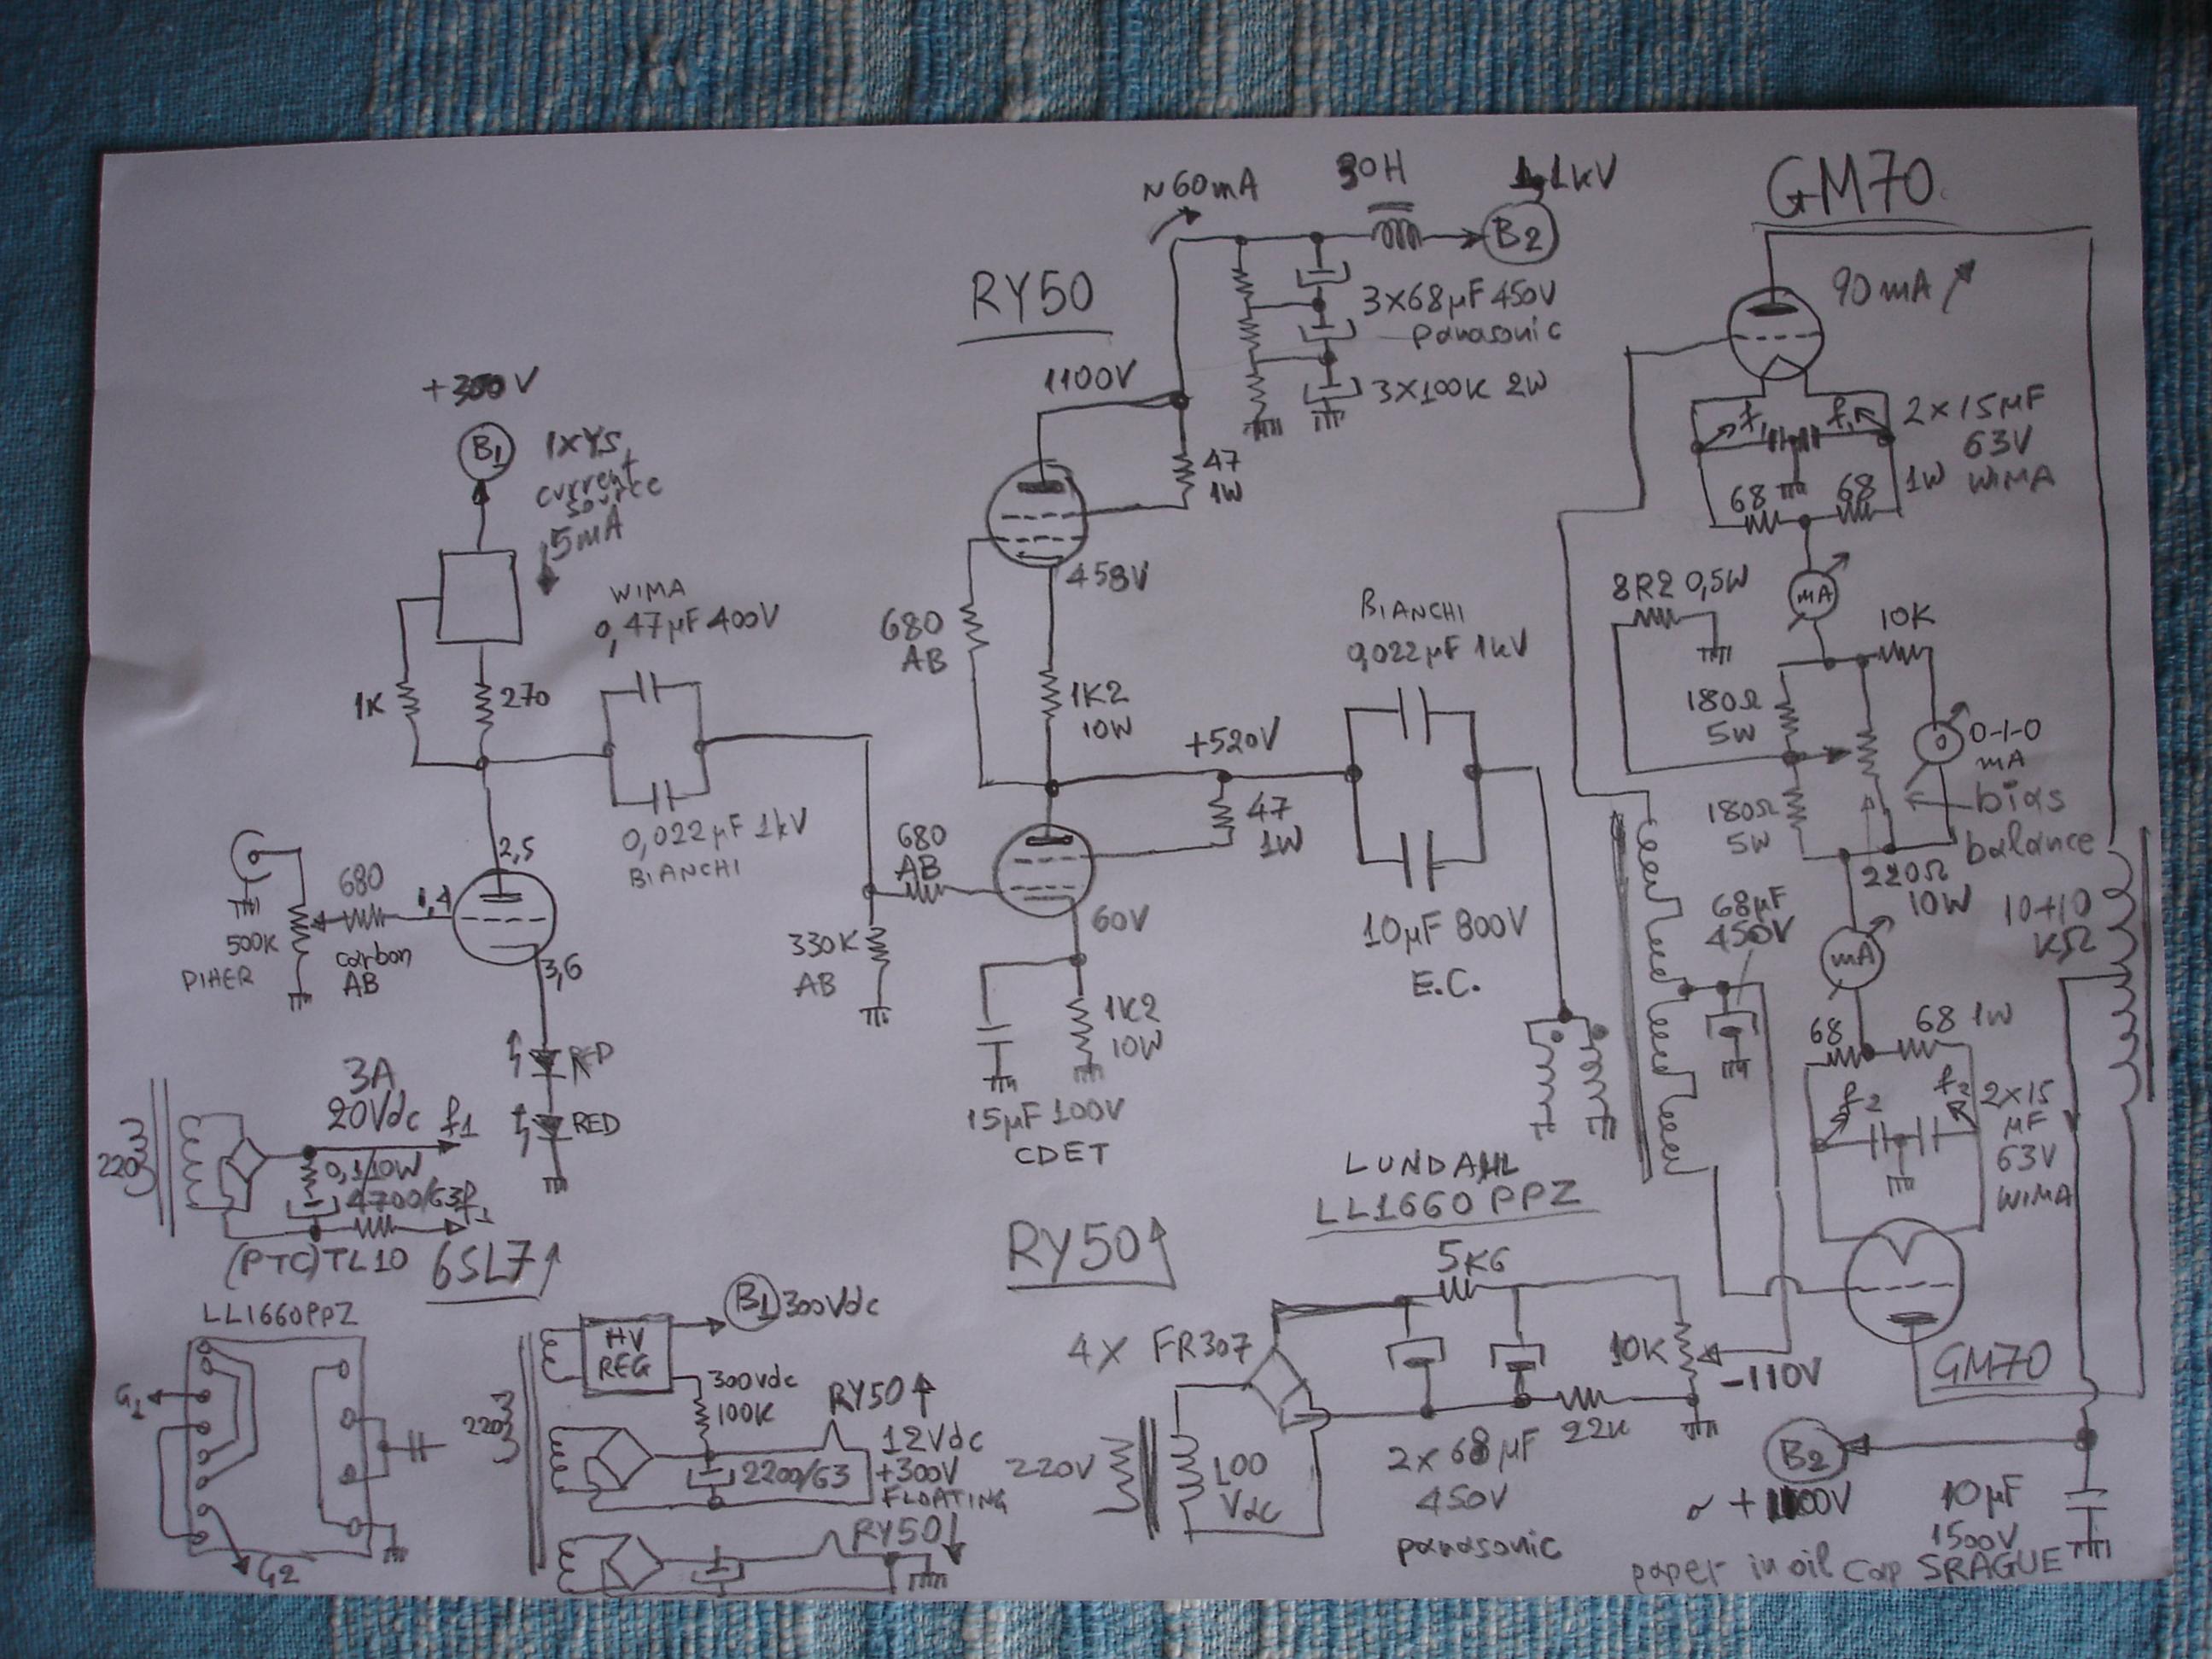 +300V
B1
1XYS
current
source
5mA
1K
270
WIMA
0,47µF 400V
0,022µF 1kV
BIANCHI
2,5
1,4
3,6
680
carbon
AB
500K
PIHER
RED
RED
3A
20Vdc f1
0,1/10W
4700/63
f1
220
(PTC)TL10
6SL7
RY50
~60mA
30H
1,1kV
B2
3X68µF 450V
panasonic
3X100K 2W
1100V
47
1W
458V
680
AB
1K2
10W
+520V
47
1W
680
AB
330K
AB
60V
1K2
10W
15µF 100V
CDET
BIANCHI
0,022µF 1kV
10µF 800V
E.C.
LUNDAHL
LL1660PPZ
RY50
GM70
90mA
f1
f1
2x15µF
63V
WIMA
68
68
1W
8R2 0,5W
mA
10K
180Ω
5W
0
0-1-0
mA
bias
balance
180Ω
5W
220Ω
10W
68µF
450V
mA
10+10
KΩ
68
68 1W
f2
f2
2x15
µF
63V
WIMA
GM70
LL1660PPZ
G1
G2
HV
REG
B1
300Vdc
300Vdc
100K
220
RY50
12Vdc
+300V
FLOATING
2200/63
RY50
4X FR307
5K6
10K
-110V
22K
220V
100
Vdc
2x68µF
450V
panasonic
B2
+1100V
10µF
1500V
paper in oil cap SRAGUE